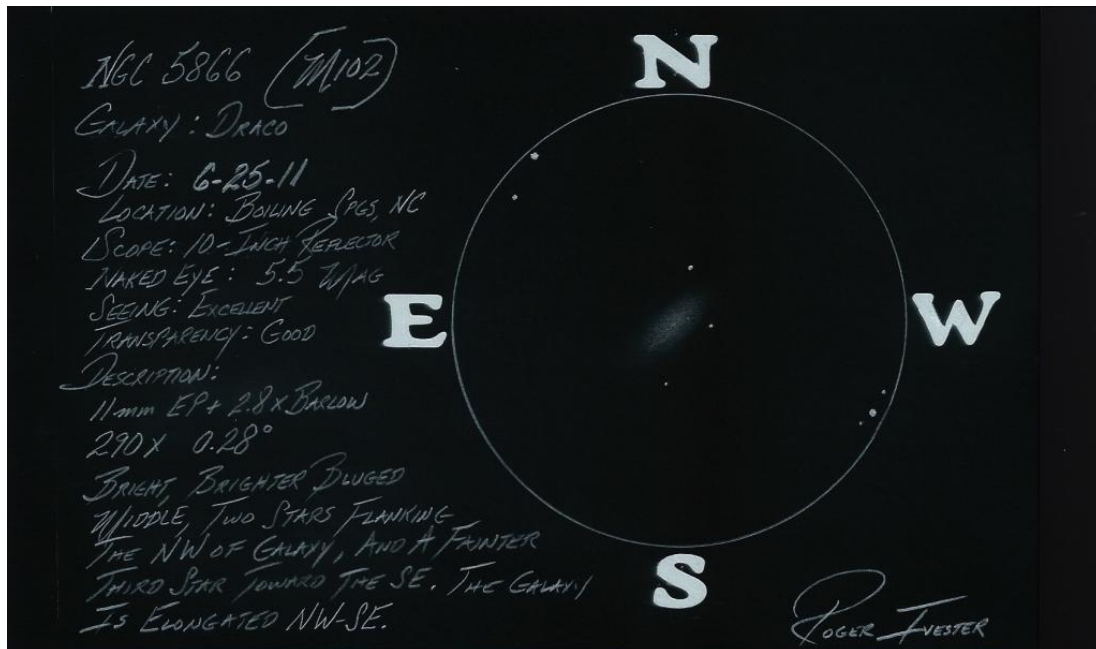 NGC 5866 (M102)
GALAXY: DRACO
DATE: 6-25-11
LOCATION: BOILING SPGS, NC
SCOPE: 10-INCH REFLECTOR
NAKED EYE: 5.5 MAG
SEEING: EXCELLENT
TRANSPARENCY: GOOD
DESCRIPTION:
11mm EP + 2.8X BARLOW
290X 0.28°
BRIGHT, BRIGHTER BLUGED
MIDDLE, TWO STARS FLANKING
THE NW OF GALAXY, AND A FAINTER
THIRD STAR TOWARD THE SE. THE GALAXY
IS ELONGATED NW-SE.
N
E
W
S
ROGER IVESTER